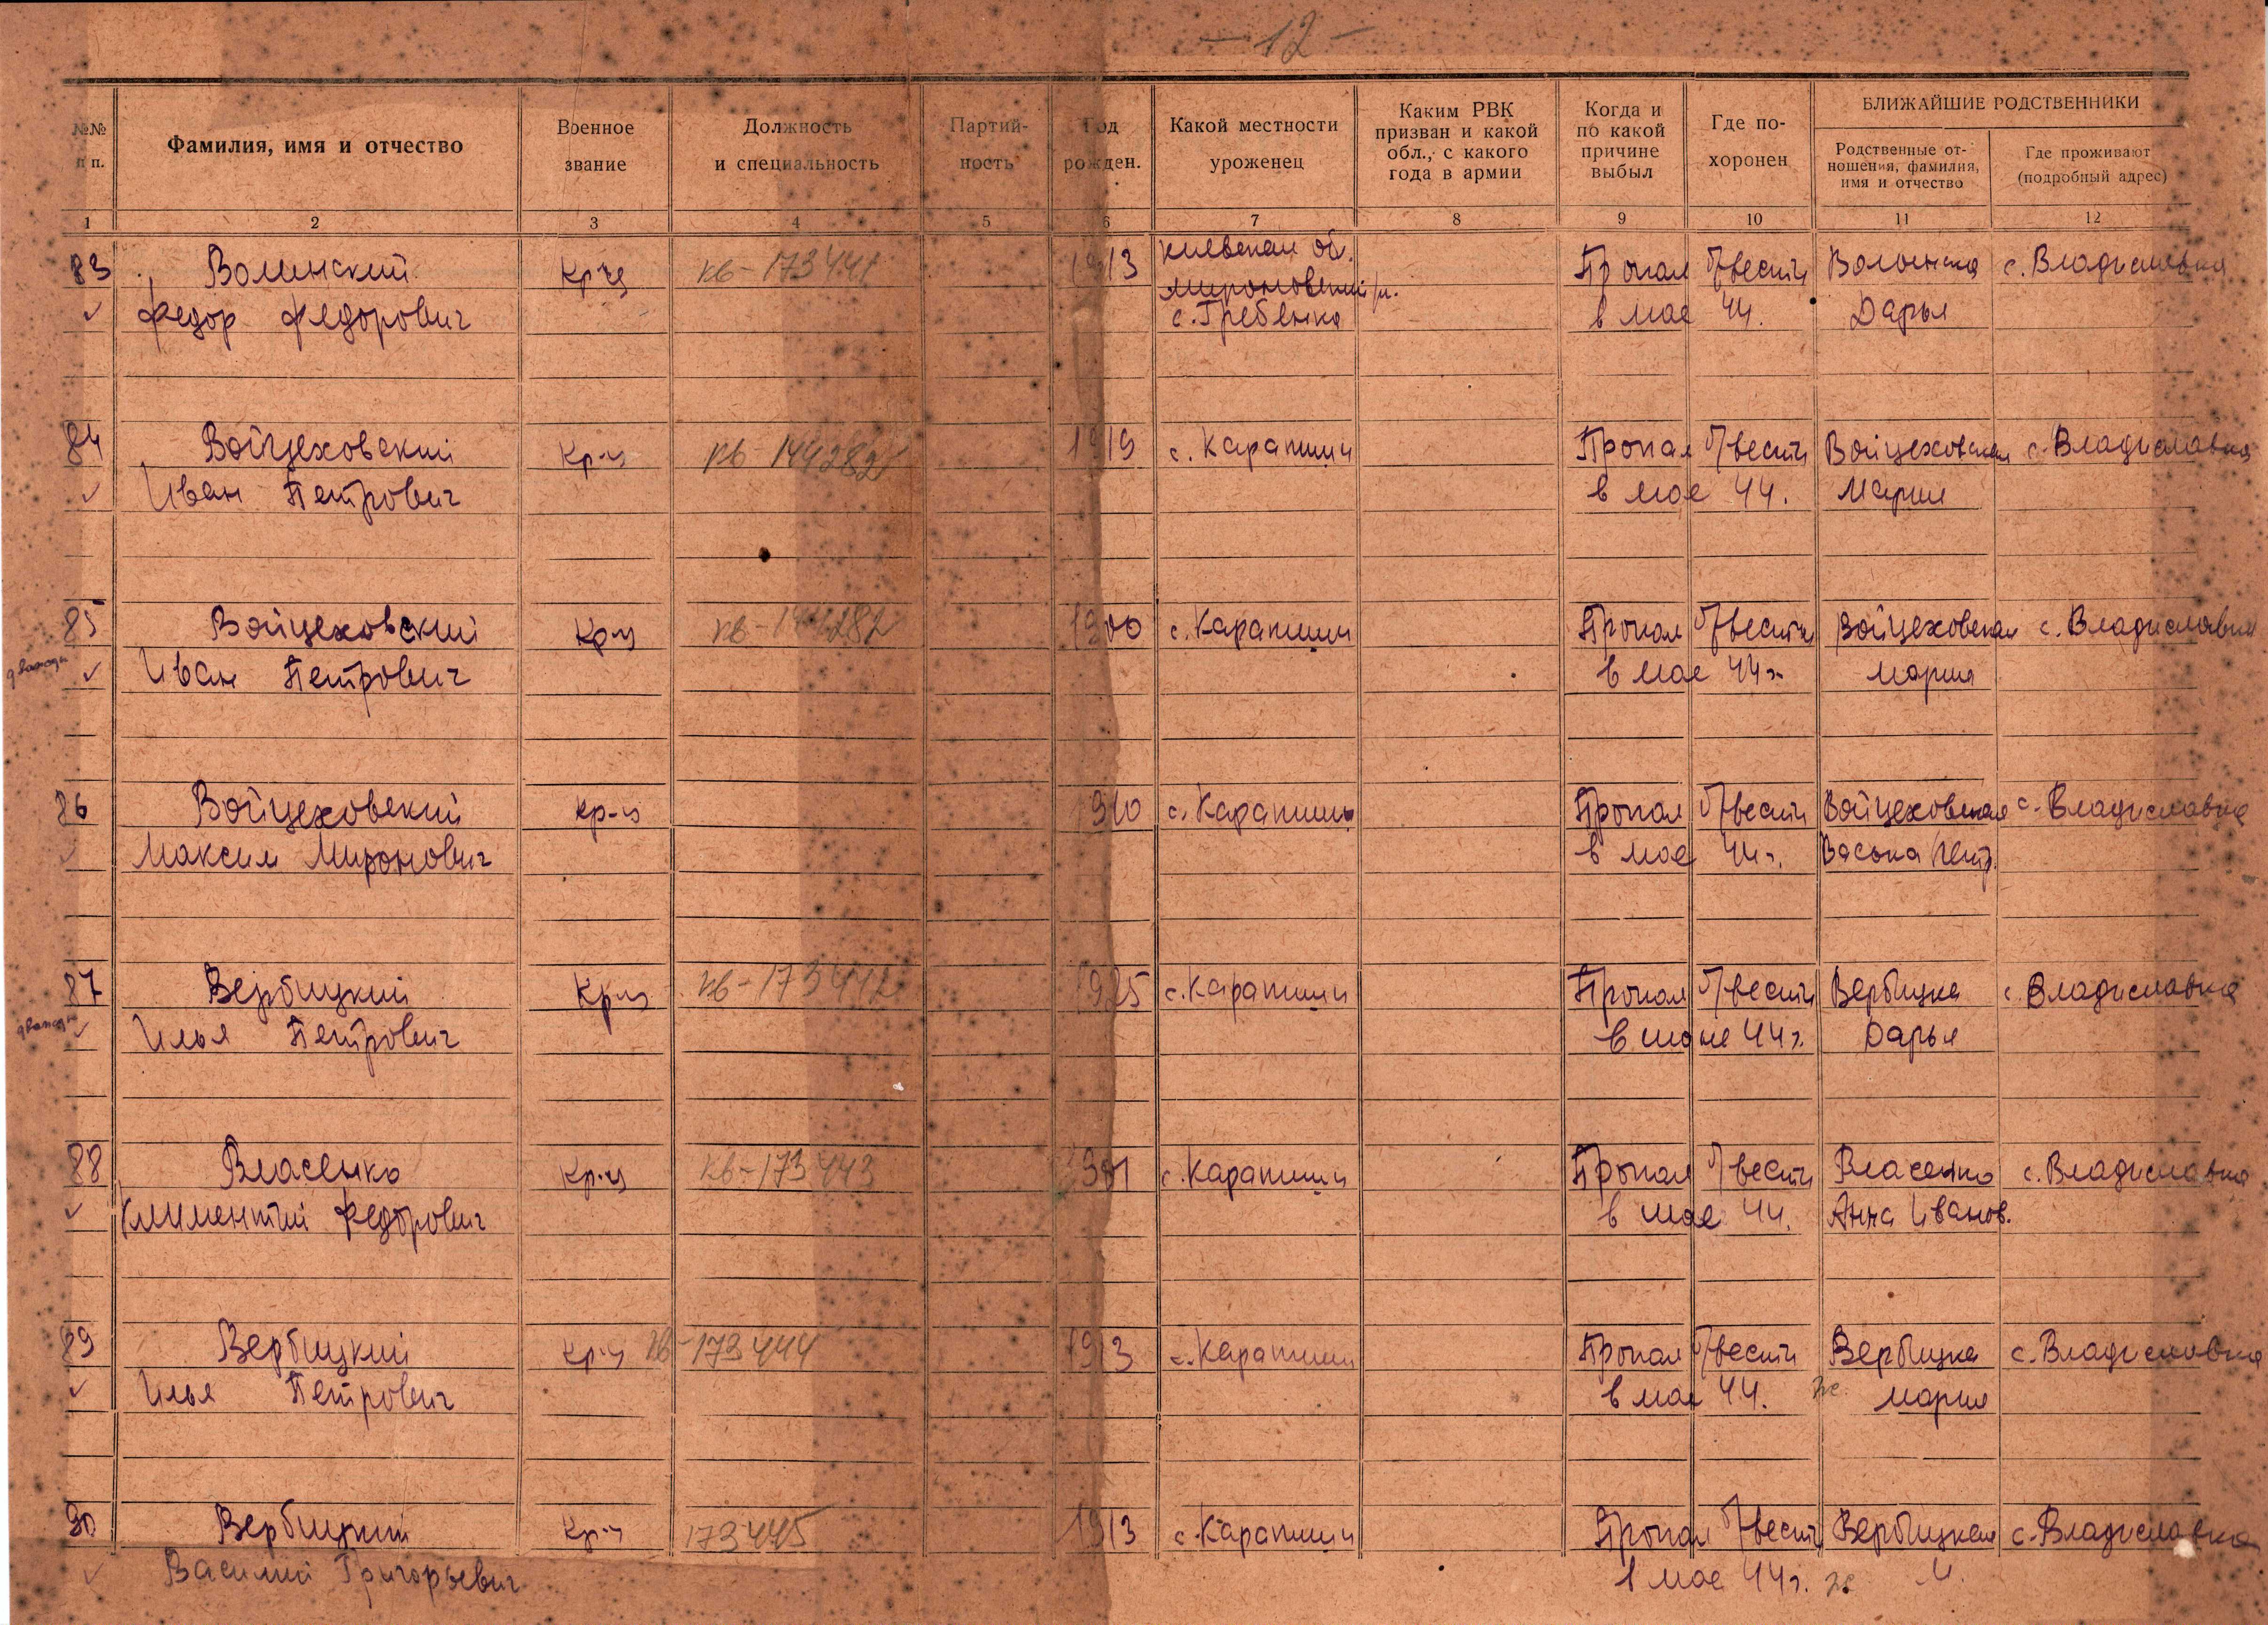 – 12 –
№№ п п.
Фамилия, имя и отчество
Военное звание
Должность и специальность
Партий-ность
Год рожден.
Какой местности уроженец
Каким РВК призван и какой обл., с какого года в армии
Когда и по какой причине выбыл
Где по-хоронен
БЛИЖАЙШИЕ РОДСТВЕННИКИ
Родственные от-ношения, фамилия, имя и отчество
Где проживают (подробный адрес)
1 2 3 4 5 6 7 8 9 10 11 12
Киевская об.
83 Волинский Кр-ц кв-173441 1913 Мироновский р. Пропал б/вести Волинска с. Владиславка
Федор Федорович с. Гребенка в мае 44. Дарья
84 Войцеховский Кр-ц кв-144282 1919 с. Карапиши Пропал б/вести Войцеховская с. Владиславка
Иван Петрович в мае 44. Мария
85 Войцеховский Кр-ц кв-144282 1900 с. Карапиши Пропал б/вести Войцеховская с. Владиславка
дважды Иван Петрович в мае 44 г. Мария
86 Войцеховский Кр-ц 1910 с. Карапиши Пропал б/вести Войцеховская с. Владиславка
Максим Миронович в мае 44 г.
87 Вербицкий Кр-ц кв-173442 1925 с. Карапиши Пропал б/вести Вербицка с. Владиславка
дважды Илья Петрович в 44 г. Дарья
88 Власенко Кр-ц кв-173443 с. Карапиши Пропал б/вести Власенко с. Владиславка
Климентий Федорович в мае 44. Анна Иванов.
89 Вербицкий Кр-ц кв-173444 1913 с. Карапиши Пропал б/вести Вербицка с. Владиславка
Илья Петрович в мае 44. ж. Мария
90 Вербицкий Кр-ц 173445 1913 с. Карапиши Пропал б/вести Вербицкая с. Владиславка
Василий Григорьевич в мае 44 г. ж. М.